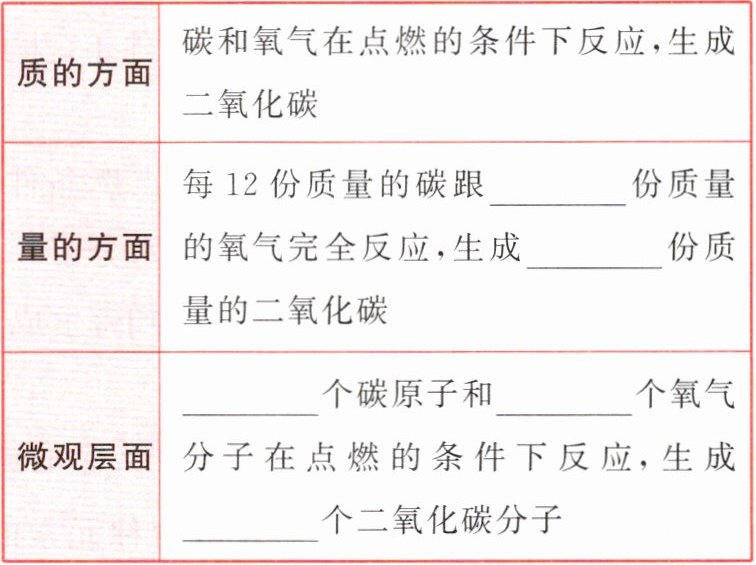 质的方面
碳和氧气在点燃的条件下反应，生成
二氧化碳
量的方面
每 12 份质量的碳跟________份质量
的氧气完全反应，生成________份质
量的二氧化碳
微观层面
________个碳原子和________个氧气
分子在点燃的条件下反应，生成
________个二氧化碳分子